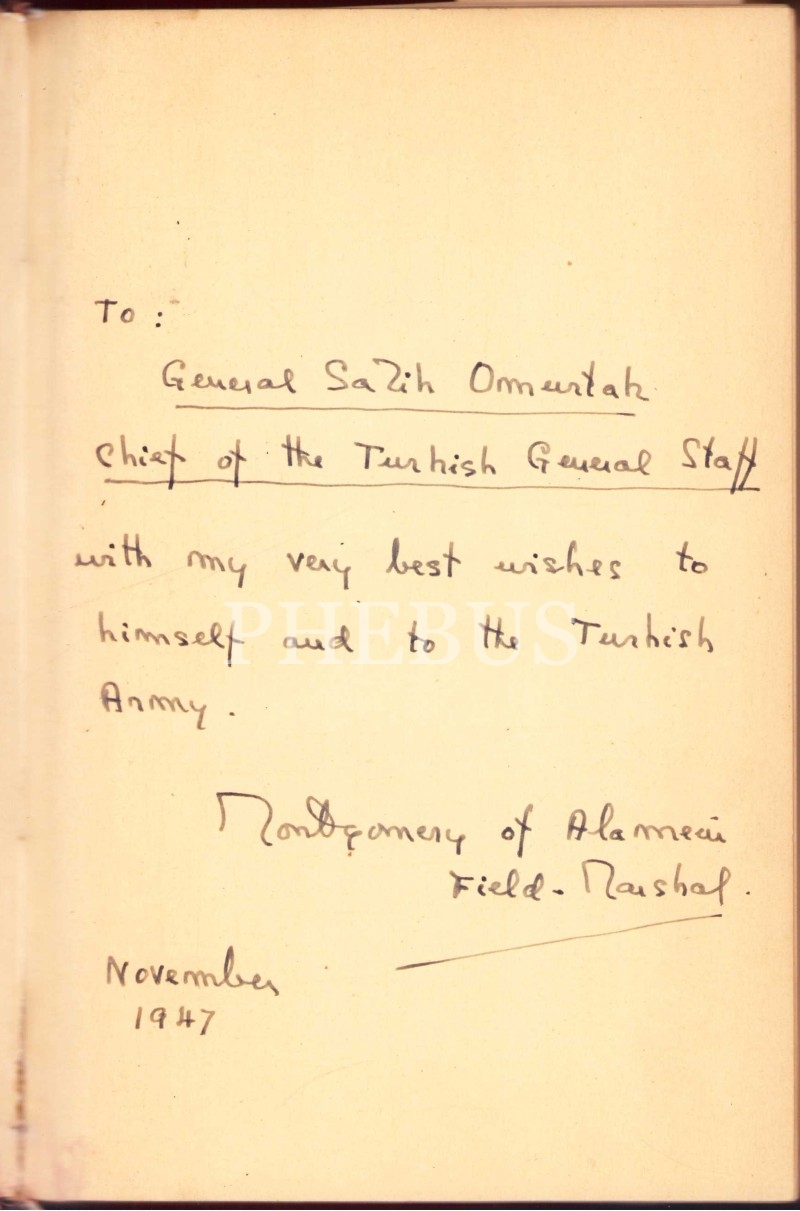 To :
General Salih Omurtak
Chief of the Turkish General Staff
with my very best wishes to
himself and to the Turkish
Army.
PHEBUS
Montgomery of Alamein
Field-Marshal.
November
1947